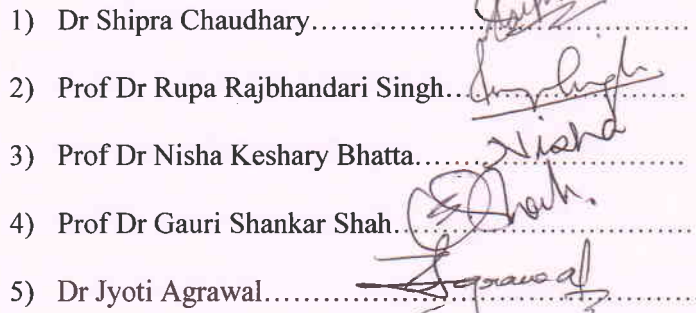 1) Dr Shipra Chaudhary
2) Prof Dr Rupa Rajbhandari Singh
3) Prof Dr Nisha Keshary Bhatta Nisha
4) Prof Dr Gauri Shankar Shah Shah.
5) Dr Jyoti Agrawal Agrawal